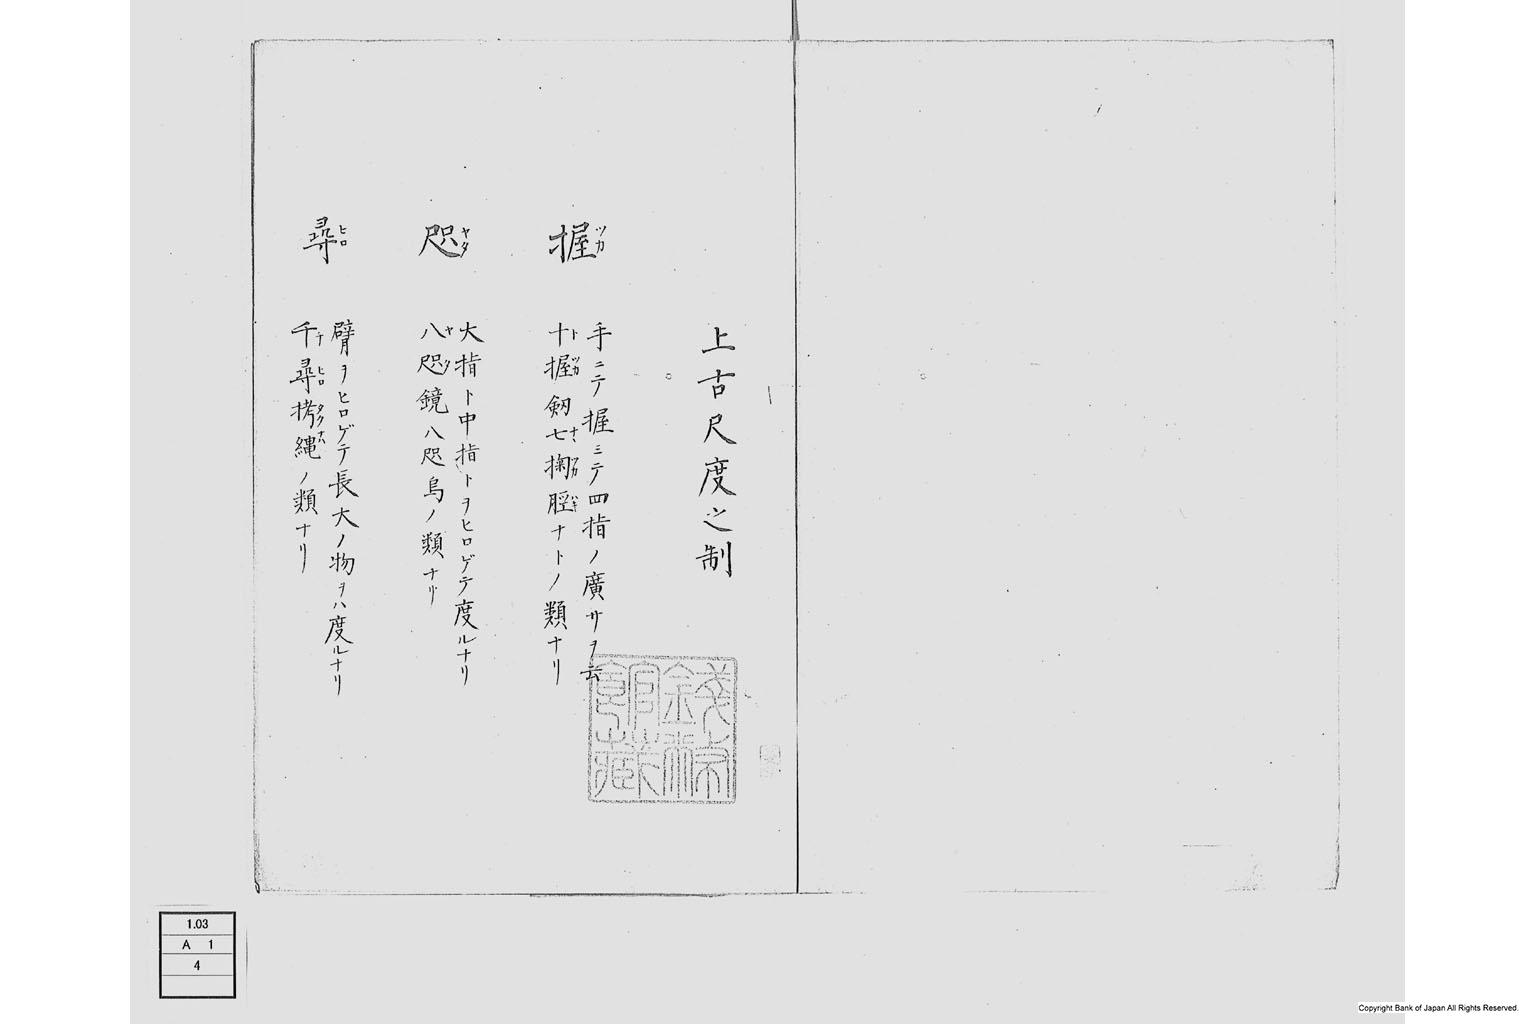 上古尺度之制
握 ツカ
手ニテ握ミテ四指ノ廣サヲ云
十握劔七掬脛ナトノ類ナリ
咫 ヤタ
大指ト中指トヲヒロゲテ度ルナリ
八咫鏡八咫烏ノ類ナリ
尋 ヒロ
臂ヲヒロゲテ長大ノ物ヲハ度ルナリ
千尋栲縄ノ類ナリ
錢幣館藏
1.03
A 1
4
Copyright Bank of Japan All Rights Reserved.